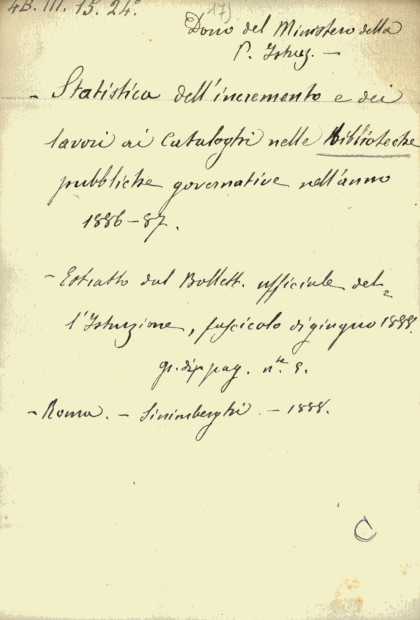 4B. III. 15. 24°
175
Dono del Ministero della
P. Istruz. —
- Statistica dell'incremento e dei
lavori ai Cataloghi nelle Biblioteche
pubbliche governative nell'anno
1886-87.
- Estratto dal Bollett. ufficiale del-
l'Istruzione, fascicolo di giugno 1888.
pag. n.re 8.
- Roma. - Sinimberghi. - 1888.
C